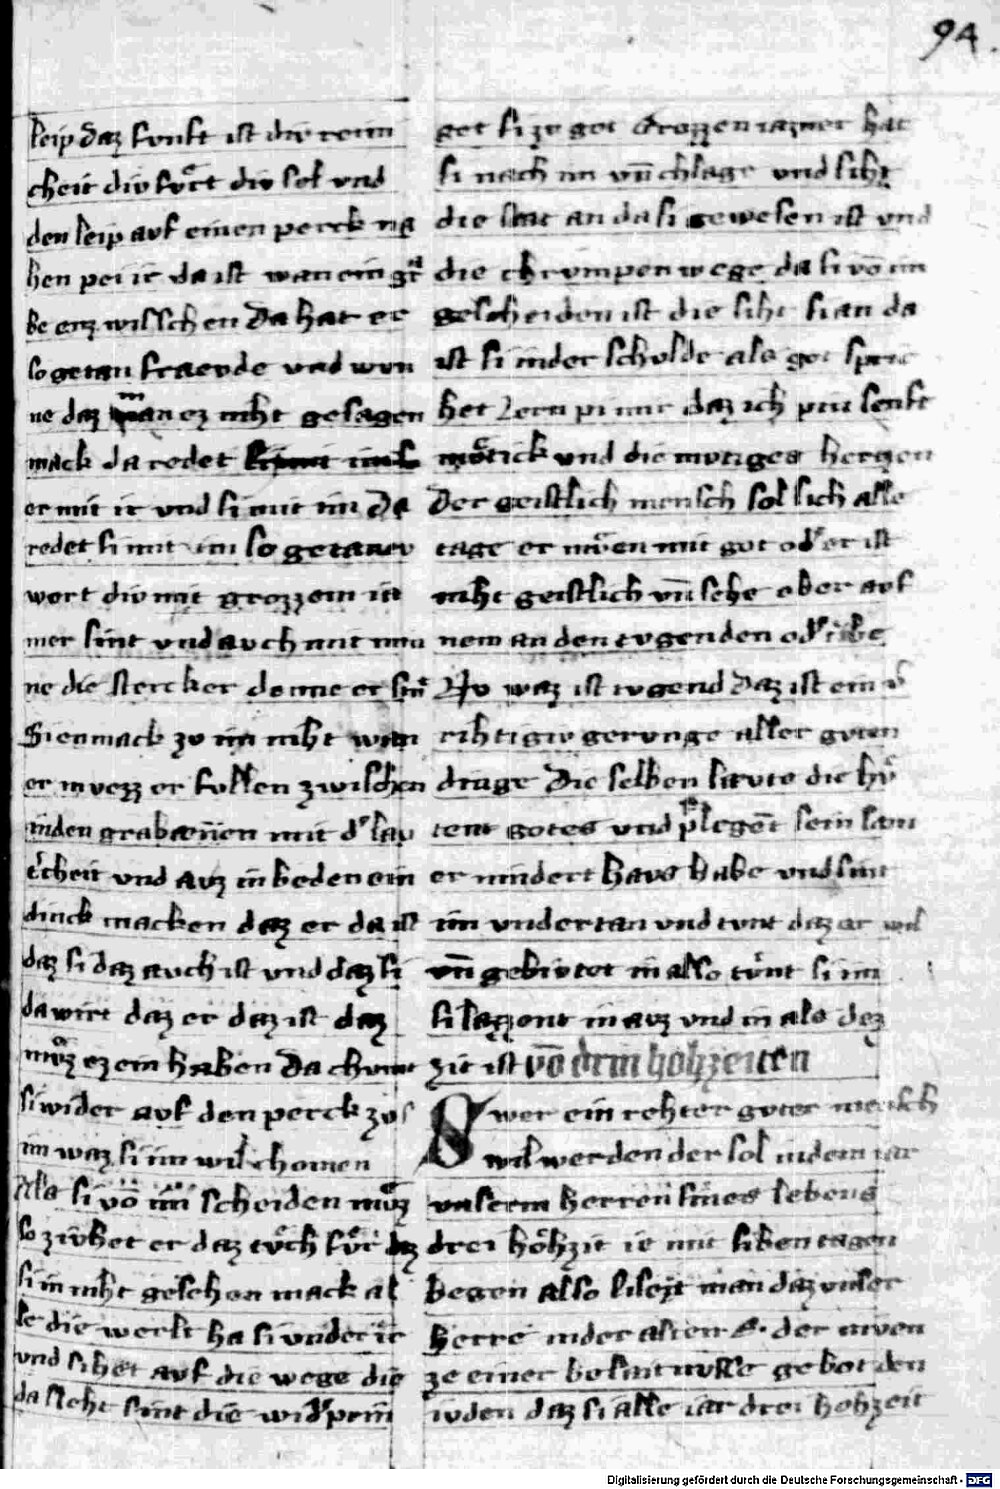 94.
leip daz funft ist div reini
cheit div fuͦrt div sel vnd
den leip avf einen perck na
hen pei ir da ist wan ein gͤ
be enzwisschen Da hat er
so getan fraevde vnd wun
ne daz man ez niht gesagen
mack da redet
er mit ir vnd si mit im Da
redet si mit im so getanev
wort div mit grozzem ia
mer sint vnd avch mit min
ne die stercker denne er sin
Sien mack zv im niht wan
er mvezz er fullen zwischen
in den grabennen mit d' lav
t'cheit vnd avz in beden ein
dinck macken daz er da ist
daz si daz avch ist vnd daz si
da wirt daz er daz ist daz
muͦz ez ein haben Da chvmt
si wider avf den perck zvs
im waz si im wil chomen
Als si vō im scheiden muͦz
so zivhet er daz tuͦͦch fuͦr daz
si in niht gesehen mack al
le die werlt ha si vnder ir
vnd sihet avf die wege die
da sleht sint die wid'perin
get si ze got Grozzen iamer hat
si nach im vn̄ chlage vnd siht
die stat an da si gewesen ist vnd
die chrvmpen wege da si vō im
gescheiden ist die siht si an da
ist si in der schvlde als got spric
het Lern pi mir daz ich pin senft
muͦtick vnd die mvtiges herzen
Der geistlich mensch sol sich alle
tage er niwen mit got od' er ist
niht geistlich vn̄ sehe ober avf
nem an den tvgenden od' abe
Nv waz ist tvgend Daz ist ein
rihtigiv gervnge aller gvten
dinge Die selben livte die hv
tent gotes vnd pflegēt sein swu
er nindert havs habe vnd sint
im vndertan vnd tvnt daz er wil
vn̄ gebivtet in also tuͦnt si im
si lazzent in avz vnd in als dez
zit ist vō drin hohzeiten
Swer ein rehter gvter mensch
wil werden der sol in dem iar
vnserm herren sines lebens
drei hoͦhzit ie mit siben tagen
began also lisent man daz vnser
herre in der alten E. der niwen
ze einer bekantnvsse gebot den
ivden daz si alle iar drei hohzeit
Digitalisierung gefördert durch die Deutsche Forschungsgemeinschaft - DFG